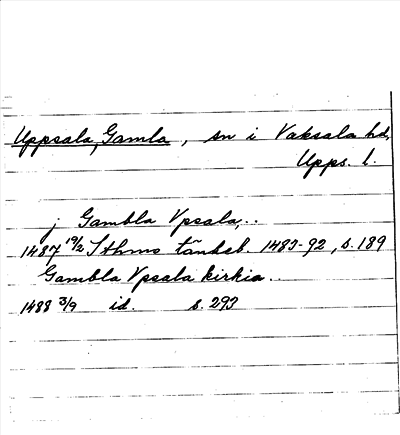 Uppsala, Gamla, sn i Vaksala hd,
Upps. l.
j Gambla Vpsala,..
1487 19/2 Sthms tänkeb. 1483-92, s. 189
Gambla Vpsala kirkia..
1488 3/9 id. s. 293